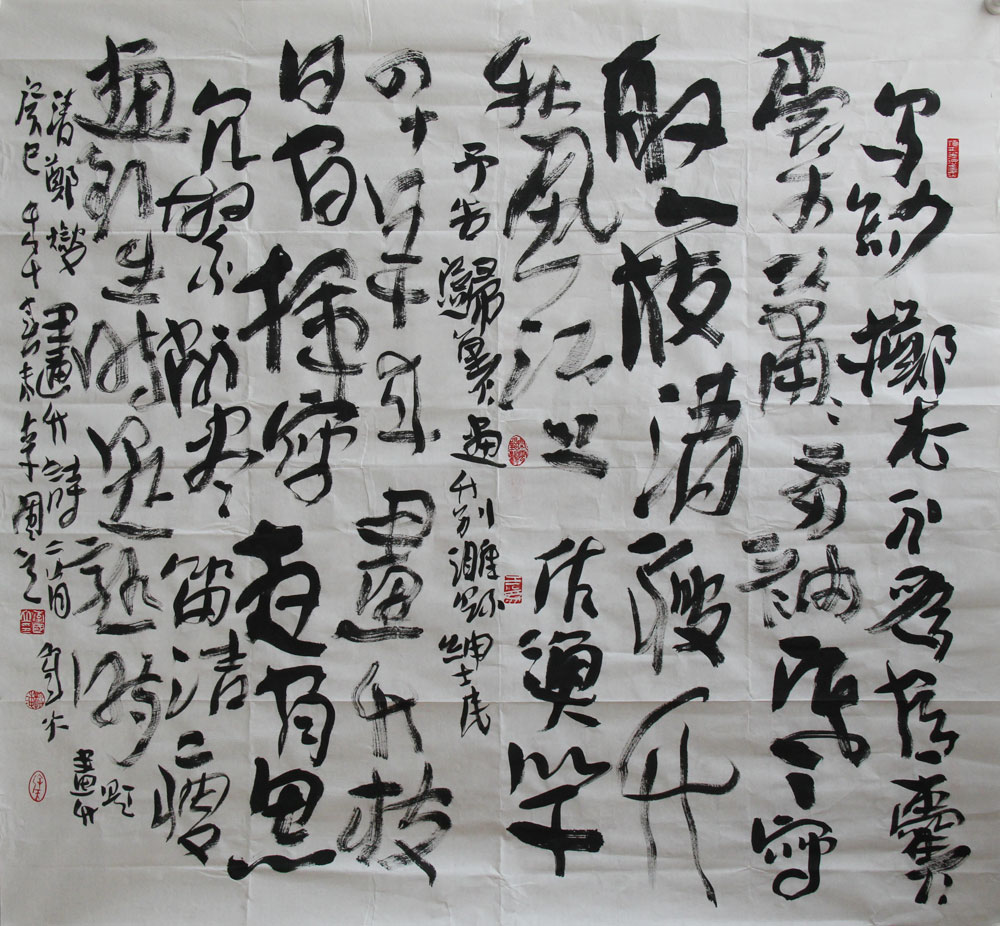 乌纱擲去不為官囊
橐蕭蕭两袖寒寫
取一枝清瘦竹
秋風江上作漁竿
予告歸里畫竹别濰縣紳士民
四十年来畫竹枝
日間揮寫夜間思
冗繁削盡留清瘦
畫到生時是熟時
畫竹題
清鄭燮畫竹詩二首
癸巳